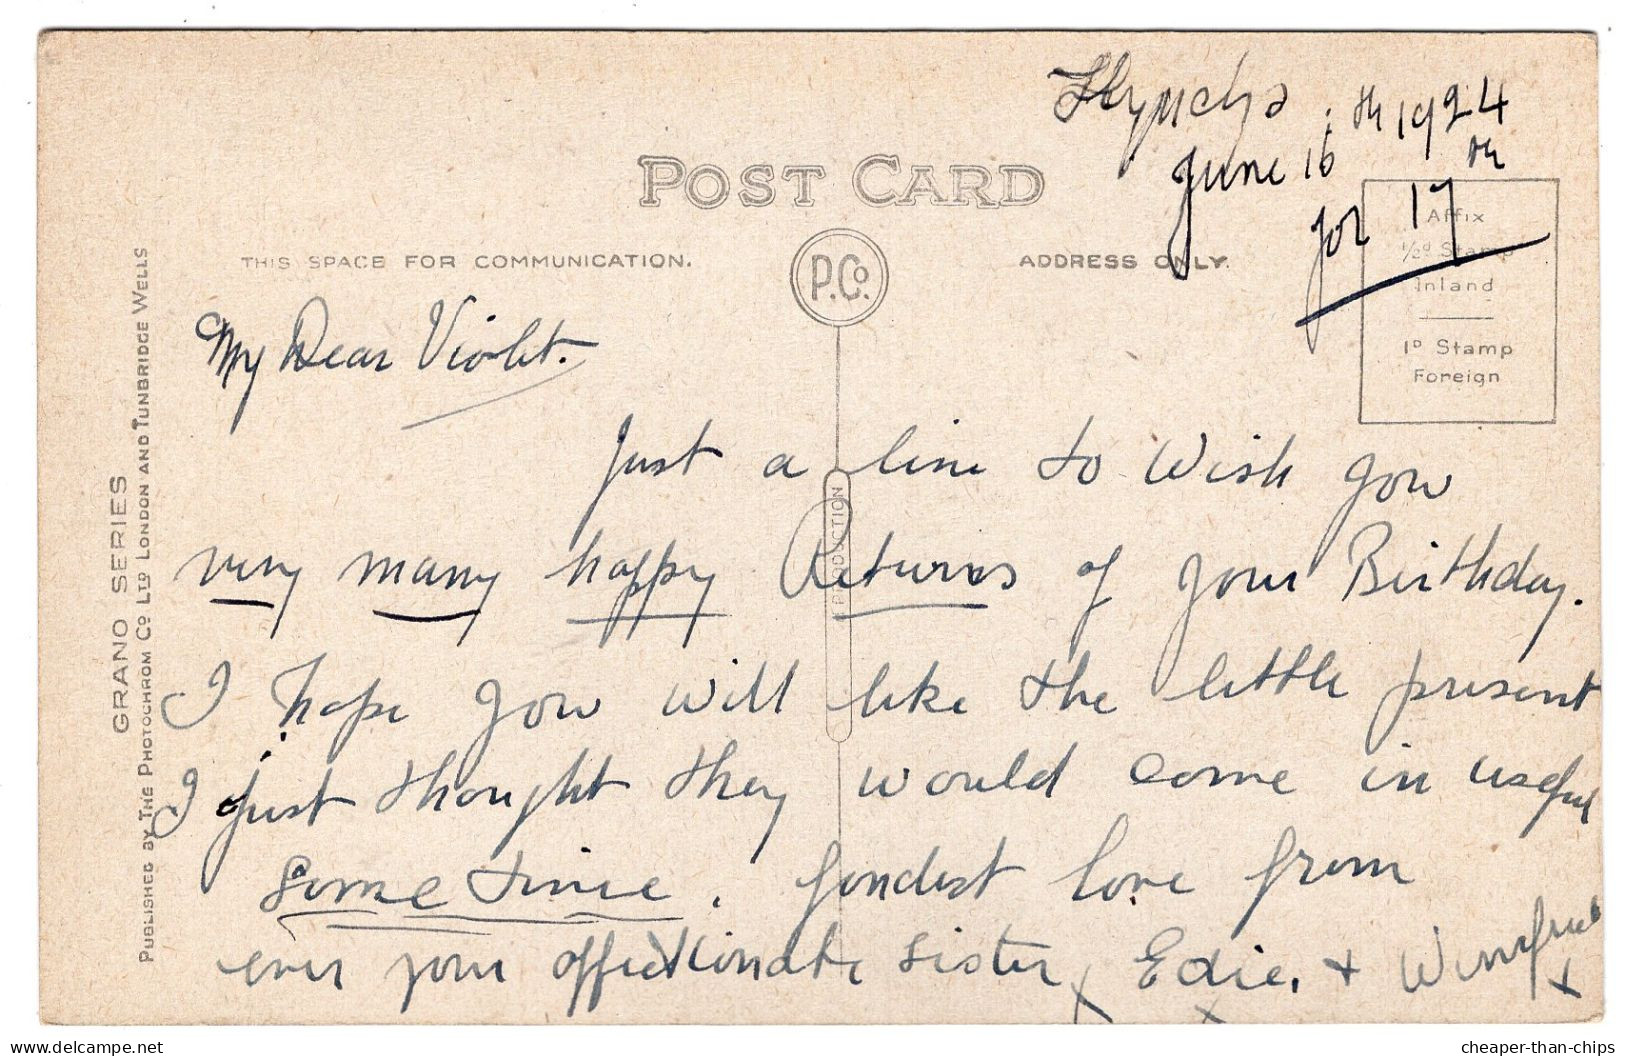 June 16th 1924
for 17th
POST CARD
THIS SPACE FOR COMMUNICATION.
P.Co.
ADDRESS ONLY.
Affix
½d Stamp
Inland
1D Stamp
Foreign
GRANO SERIES
PUBLISHED BY THE PHOTOCHROM CO LTD LONDON AND TUNBRIDGE WELLS
PRODUCTION
My Dear Violet.
Just a line to Wish you
very many happy Returns of your Birthday.
I hope you will like the little present
I just thought they would come in useful
some time. fondest love from
ever your affectionate sister Edie. + Winifred
x x x
cheaper-than-chips
www.delcampe.net